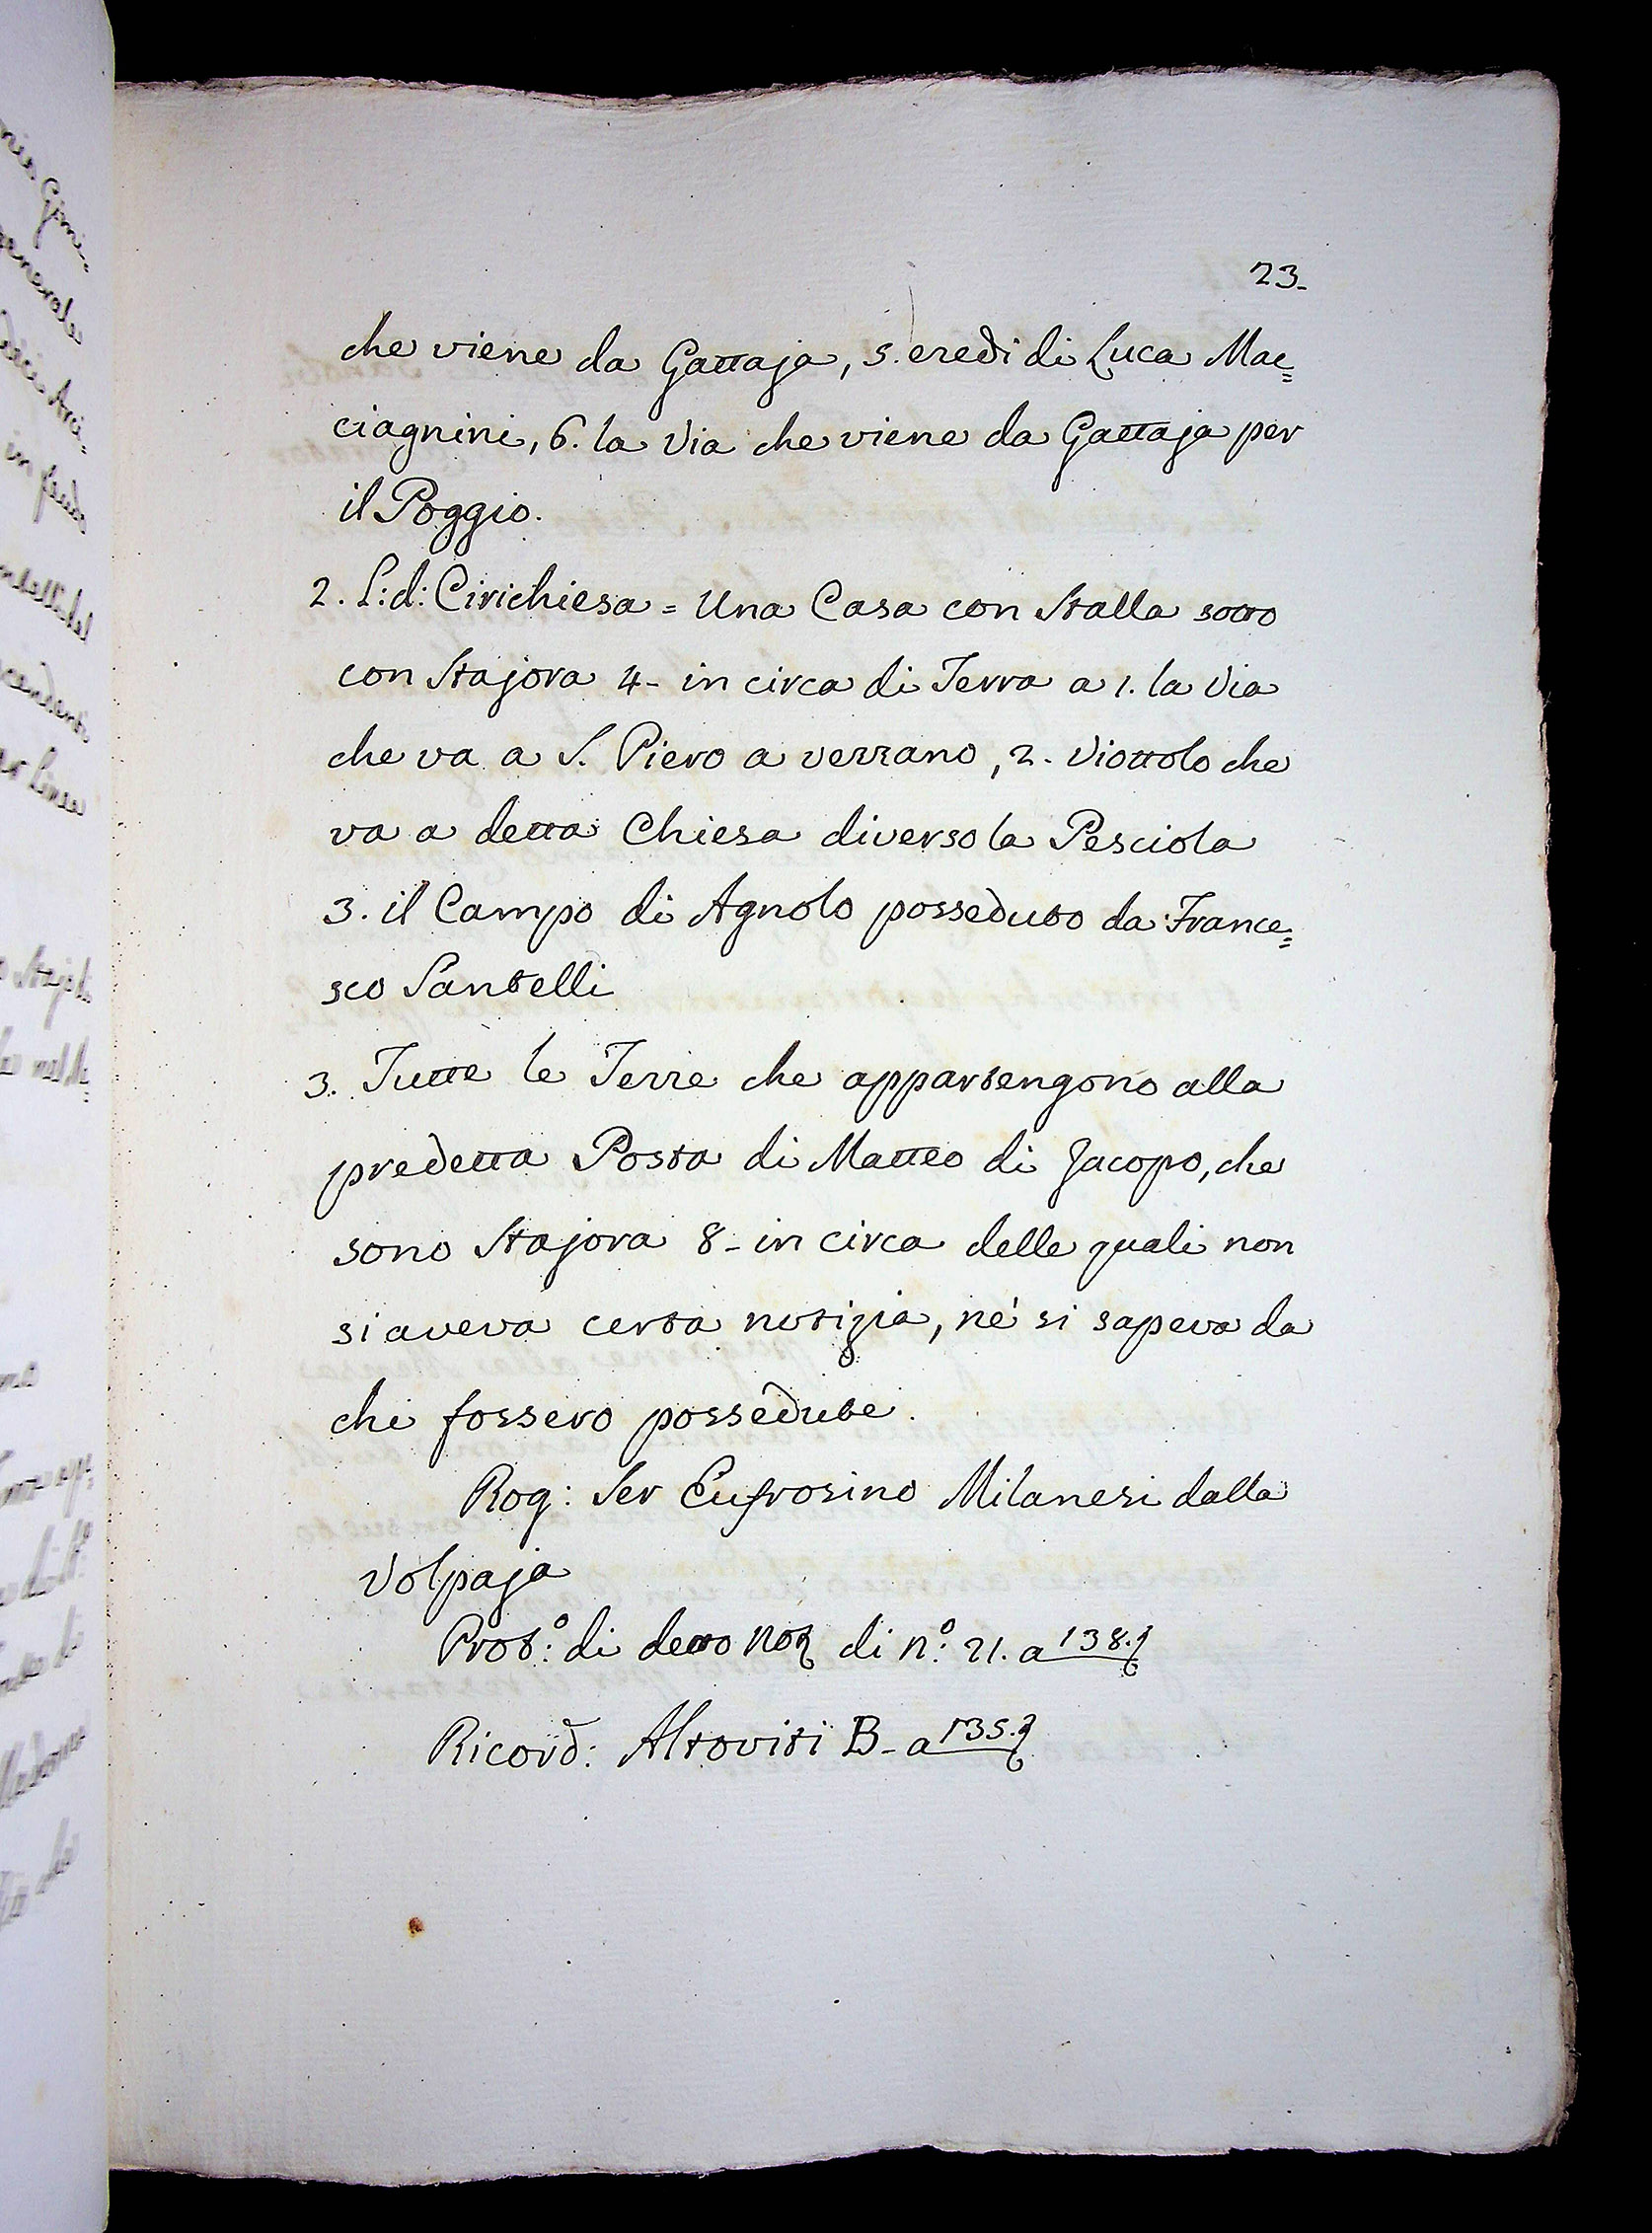 23.
che viene da Gattaja, 5. eredi di Luca Mac=
ciagnini, 6. la Via che viene da Gattaja per
il Poggio.
2. L: d: Cirichiesa = Una Casa con Stalla sotto
con Stajora 4- in circa di Terra a 1. la Via
che va a S. Piero a verzano, 2. Viottolo che
va a detta Chiesa diverso la Pesciola
3. il Campo di Agnolo posseduto da France=
sco Santelli
3. Tutte le Terre che appartengono alla
predetta Posta di Matteo di Jacopo, che
sono Stajora 8- in circa delle quali non
si aveva certa notizia, nè si sapeva da
chi fossero possedute.
Rog: Ser Eufrosino Milanesi dalla
Volpaja
Prot:º di detto Not di n:º 21. a 138.
Ricord: Altoviti B- a 135.